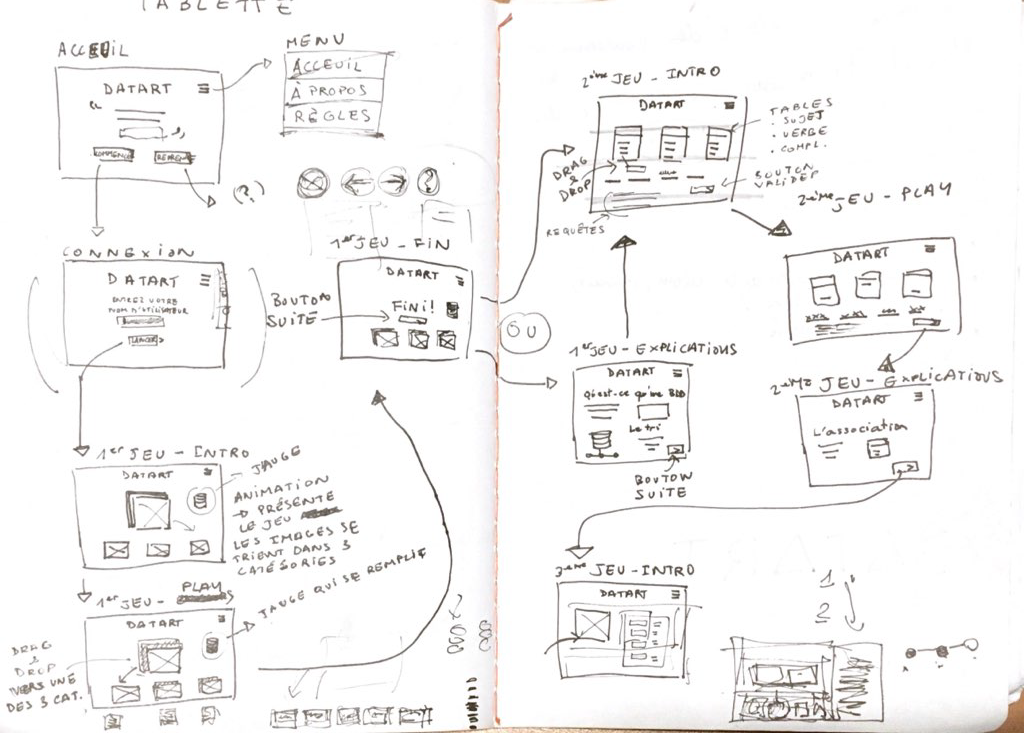 TABLETTE
ACCEUIL
DATART
COMMENCER
REPRENDRE
(?)
MENU
ACCEUIL
À PROPOS
RÈGLES
CONNEXION
DATART
ENTREZ VOTRE
NOM D'UTILISATEUR
LANCER >
1er JEU - INTRO
DATART
JAUGE
ANIMATION
→ PRÉSENTE
LE JEU
LES IMAGES SE
TRIENT DANS 3
CATÉGORIES
1er JEU - PLAY
DATART
JAUGE QUI SE REMPLIE
DRAG
&
DROP
VERS UNE
DES 3 CAT.
1er JEU - FIN
DATART
FINI!
BOUTON
SUITE
OU
1er JEU - EXPLICATIONS
DATART
Qu'est-ce qu'une BDD
Le tri
BOUTON
SUITE
2ème JEU - INTRO
DATART
TABLES
. SUJET
. VERBE
. COMPL.
DRAG
&
DROP
BOUTON
VALIDER
REQUÊTES
2ème JEU - PLAY
DATART
2ème JEU - EXPLICATIONS
DATART
L'association
3ème JEU - INTRO
DATART
1
2